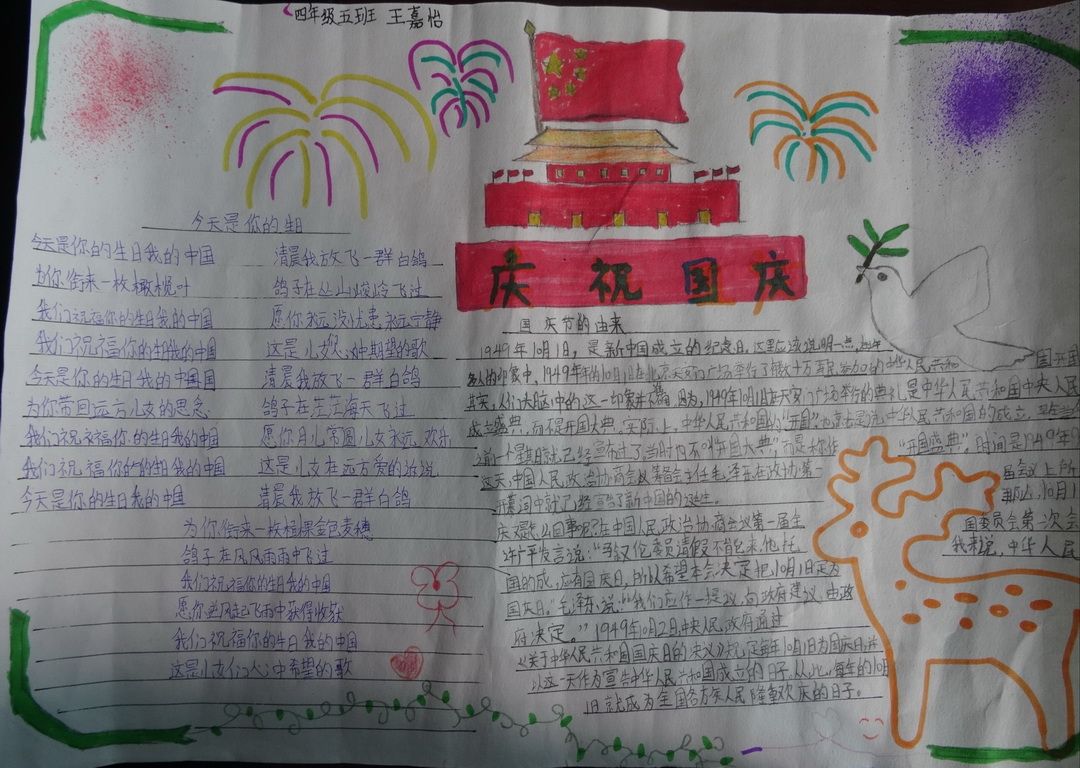 四年级五班 王嘉怡
庆祝国庆
今天是你的生日
今天是你的生日我的中国 清晨我放飞一群白鸽
为你衔来一枚橄榄叶 鸽子在丛山峻岭飞过
我们祝福你的生日我的中国 愿你永远没忧患永远宁静
我们祝福你的生日我的中国 这是儿女心中期望的歌
今天是你的生日我的中国 清晨我放飞一群白鸽
为你带回远方儿女的思念 鸽子在茫茫海天飞过
我们祝福你的生日我的中国 愿你月儿常圆儿女永远欢乐
我们祝福你的生日我的中国 这是儿女在远方爱的诉说
今天是你的生日我的中国 清晨我放飞一群白鸽
为你衔来一枚 金色麦穗
鸽子在风风雨雨中飞过
我们祝福你的生日我的中国
愿你逆风起飞雨中获得收获
我们祝福你的生日我的中国
这是儿女们心中希望的歌
国庆节的由来
1949年10月1日，是新中国成立的纪念日。这里应该说明一点，
多人的印象中，1949年的10月1日在北京天安门广场举行了 中华人民共和 国开国
其实，人们大脑中的这一印象并 因为，1949年10月1日在天安门广场举行的典礼是中华人民共和国中央人民
成立盛典，而不是开国大典。实际上，中华人民共和国的“开国”，也就是说中华人民共和国的成立，
之前一个星期就已经宣布过了。当时也不叫“开国大典”，而是称作“开国盛典”。时间是1949年9
这天，中国人民政治协商会议筹备会主任毛泽东在政协第一 届会议上所
开幕词中就已经宣告了新中国的诞生。 那么，10月1
庆又是怎么回事呢？在中国人民政治协商会议第一届全 国委员会第一次会
许广平发言说：“马叙伦委员请假不能来，他托 我来说，中华人民
国的成 应有国庆日，所以希望本会决定把10月1日定为
国庆日。”毛泽东说：“我们应作一提议，向政府建议，由政
府决定。”1949年10月2日，中央人民政府通过
《关于中华人民共和国国庆日的决议》规定每年10月1日为国庆日，并
以这一天作为宣告中华人民共和国成立的日子。从此，每年的10月
1日就成为全国各族人民隆重欢庆的日子。